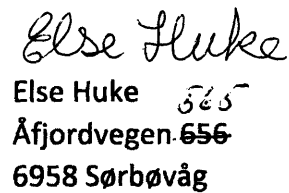 Else Huke
Else Huke 565
Åfjordvegen 656
6958 Sørbøvåg